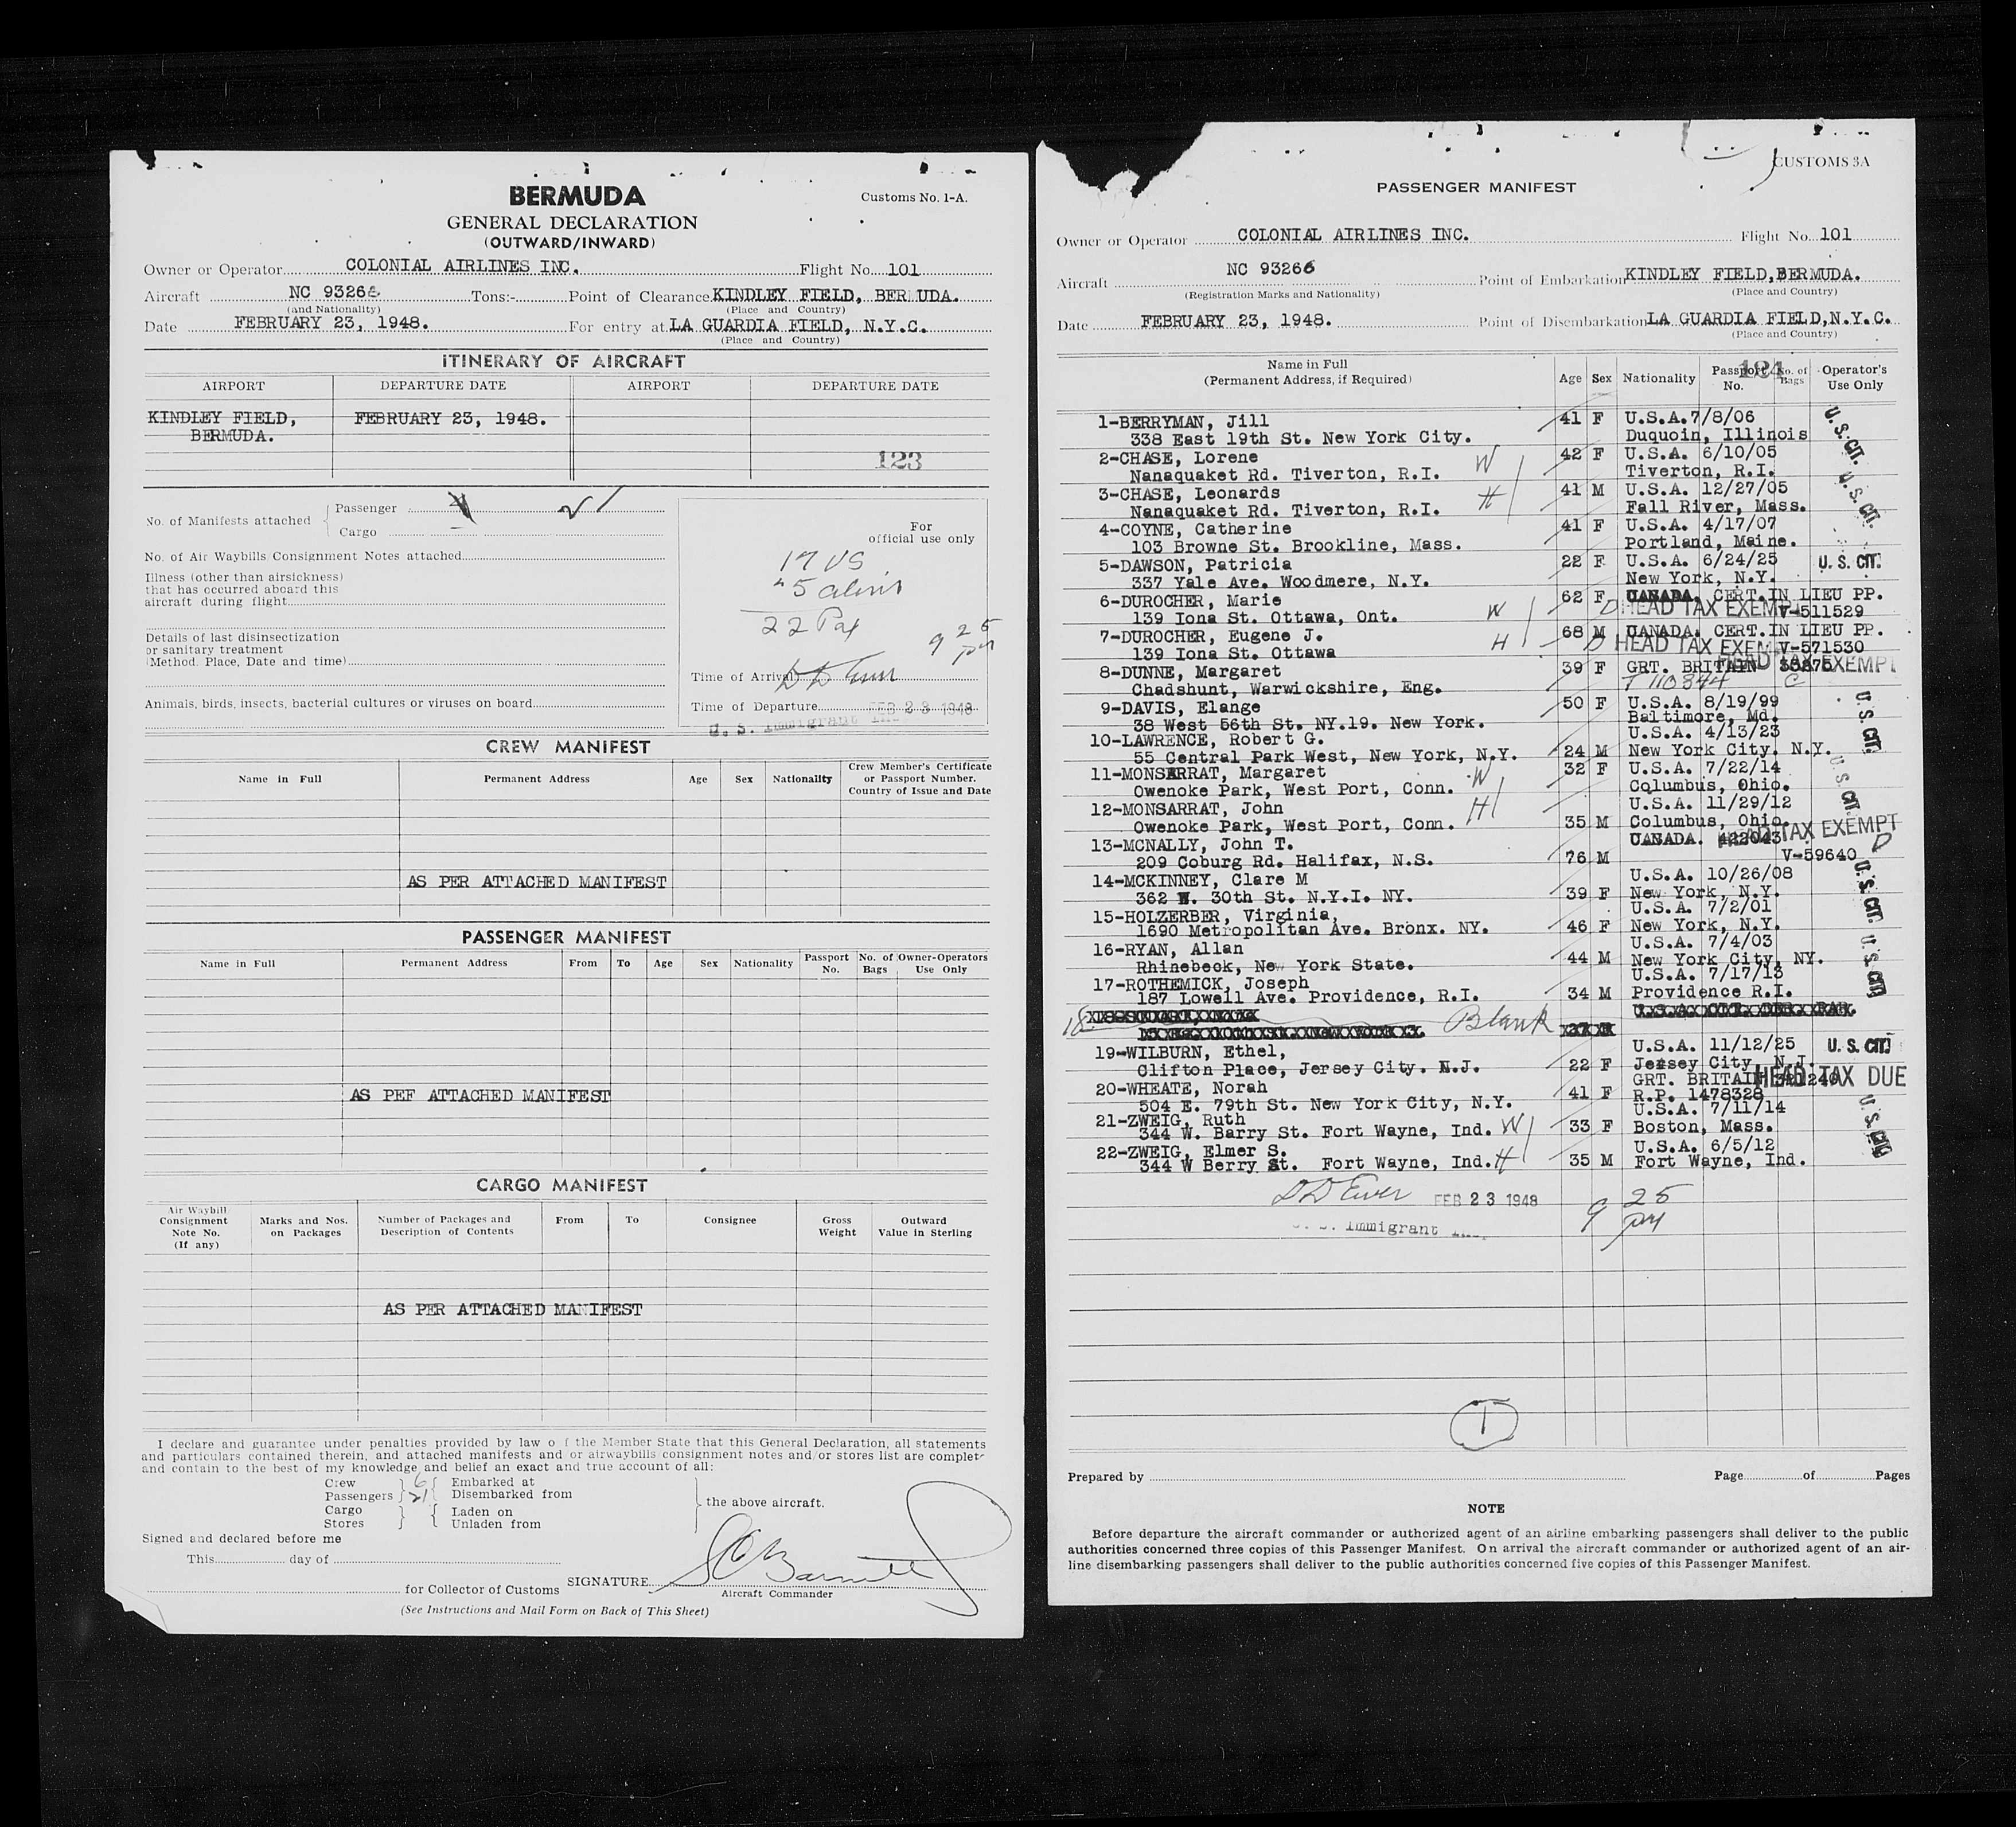 BERMUDA
Customs No. 1-A.
GENERAL DECLARATION
(OUTWARD/INWARD)
Owner or Operator COLONIAL AIRLINES INC. Flight No. 101
Aircraft NC 93266 Tons:- Point of Clearance KINDLEY FIELD, BER UDA.
(and Nationality) (Place and Country)
Date FEBRUARY 23, 1948. For entry at LA GUARDIA FIELD, N.Y.C.
(Place and Country)
ITINERARY OF AIRCRAFT
AIRPORT DEPARTURE DATE AIRPORT DEPARTURE DATE
KINDLEY FIELD, FEBRUARY 23, 1948.
BERMUDA.
123
No. of Manifests attached
Passenger
Cargo
For
official use only
No. of Air Waybills/Consignment Notes attached
17 US
5 aliens
22 Pax
Illness (other than airsickness)
that has occurred aboard this
aircraft during flight
Details of last disinsectization
or sanitary treatment
(Method, Place, Date and time)
9 25 pm
Time of Arrival
Animals, birds, insects, bacterial cultures or viruses on board
Time of Departure FEB 23 1948
U. S. Immigrant
CREW MANIFEST
Name in Full Permanent Address Age Sex Nationality Crew Member's Certificate
or Passport Number.
Country of Issue and Date
AS PER ATTACHED MANIFEST
PASSENGER MANIFEST
Name in Full Permanent Address From To Age Sex Nationality Passport No. No. of Bags Owner-Operators Use Only
AS PEF ATTACHED MANIFEST
CARGO MANIFEST
Air Waybill
Consignment
Note No.
(If any)
Marks and Nos.
on Packages
Number of Packages and
Description of Contents
From To Consignee
Gross
Weight
Outward
Value in Sterling
AS PER ATTACHED MANIFEST
I declare and guarantee under penalties provided by law of the Member State that this General Declaration, all statements
and particulars contained therein, and attached manifests and or airwaybills consignment notes and/or stores list are complete
and contain to the best of my knowledge and belief an exact and true account of all:
Crew 6 Embarked at
Passengers 21 Disembarked from
the above aircraft.
Cargo Laden on
Stores Unladen from
Signed and declared before me
This day of
for Collector of Customs SIGNATURE
Aircraft Commander
(See Instructions and Mail Form on Back of This Sheet)
CUSTOMS 3A
PASSENGER MANIFEST
Owner or Operator COLONIAL AIRLINES INC. Flight No. 101
Aircraft NC 93266 Point of Embarkation KINDLEY FIELD, BERMUDA.
(Registration Marks and Nationality) (Place and Country)
Date FEBRUARY 23, 1948. Point of Disembarkation LA GUARDIA FIELD, N.Y.C.
(Place and Country)
Name in Full
(Permanent Address, if Required)
Age Sex Nationality Passport No. No. of Bags Operator's Use Only
124
1-BERRYMAN, Jill 41 F U.S.A. 7/8/06
338 East 19th St. New York City. Duquoin, Illinois
U.S. CIT.
2-CHASE, Lorene W 42 F U.S.A. 6/10/05
Nanaquaket Rd. Tiverton, R.I. Tiverton, R.I.
3-CHASE, Leonards H 41 M U.S.A. 12/27/05
Nanaquaket Rd. Tiverton, R.I. Fall River, Mass.
U.S. CIT.
4-COYNE, Catherine 41 F U.S.A. 4/17/07
103 Browne St. Brookline, Mass. Portland, Maine.
5-DAWSON, Patricia 22 F U.S.A. 6/24/25
337 Yale Ave. Woodmere, N.Y. New York, N.Y.
U. S. CIT.
6-DUROCHER, Marie W 62 F CANADA. CERT.IN LIEU PP.
139 Iona St. Ottawa, Ont. D HEAD TAX EXEMPT V-511529
7-DUROCHER, Eugene J. H 68 M CANADA. CERT.IN LIEU PP.
139 Iona St. Ottawa D HEAD TAX EXEMPT V-571530
8-DUNNE, Margaret 39 F GRT. BRITAIN HEAD TAX EXEMPT
Chadshunt, Warwickshire, Eng. T 110344 C
9-DAVIS, Elange 50 F U.S.A. 8/19/99
38 West 56th St. NY.19. New York. Baltimore, Md.
U.S. CIT.
10-LAWRENCE, Robert G. U.S.A. 4/13/23
55 Central Park West, New York, N.Y. 24 M New York City, N.Y.
11-MONSARRAT, Margaret W 32 F U.S.A. 7/22/14
Owenoke Park, West Port, Conn. Columbus, Ohio.
U.S. CIT.
12-MONSARRAT, John H U.S.A. 11/29/12
Owenoke Park, West Port, Conn. 35 M Columbus, Ohio.
13-MCNALLY, John T. CANADA. 422043 HEAD TAX EXEMPT
209 Coburg Rd. Halifax, N.S. 76 M V-59640 D
14-MCKINNEY, Clare M U.S.A. 10/26/08
362 W. 30th St. N.Y.I. NY. 39 F New York, N.Y.
U.S. CIT.
15-HOLZERBER, Virginia, U.S.A. 7/2/01
1690 Metropolitan Ave. Bronx. NY. 46 F New York, N.Y.
16-RYAN, Allan U.S.A. 7/4/03
Rhinebeck, New York State. 44 M New York City, NY.
U.S. CIT.
17-ROTHEMICK, Joseph U.S.A. 7/17/13
187 Lowell Ave. Providence, R.I. 34 M Providence R.I.
18 Blank
19-WILBURN, Ethel, U.S.A. 11/12/25 U. S. CIT.
Clifton Place, Jersey City. N.J. 22 F Jersey City, N.J.
20-WHEATE, Norah GRT. BRITAIN HEAD TAX DUE
504 E. 79th St. New York City, N.Y. 41 F R.P. 1478328
21-ZWEIG, Ruth U.S.A. 7/11/14
344 W. Barry St. Fort Wayne, Ind. W 33 F Boston, Mass.
U.S. CIT.
22-ZWEIG, Elmer S. U.S.A. 6/5/12
344 W Berry St. Fort Wayne, Ind. H 35 M Fort Wayne, Ind.
FEB 23 1948 9 25 pm
Immigrant
1
Prepared by Page of Pages
NOTE
Before departure the aircraft commander or authorized agent of an airline embarking passengers shall deliver to the public
authorities concerned three copies of this Passenger Manifest. On arrival the aircraft commander or authorized agent of an air-
line disembarking passengers shall deliver to the public authorities concerned five copies of this Passenger Manifest.